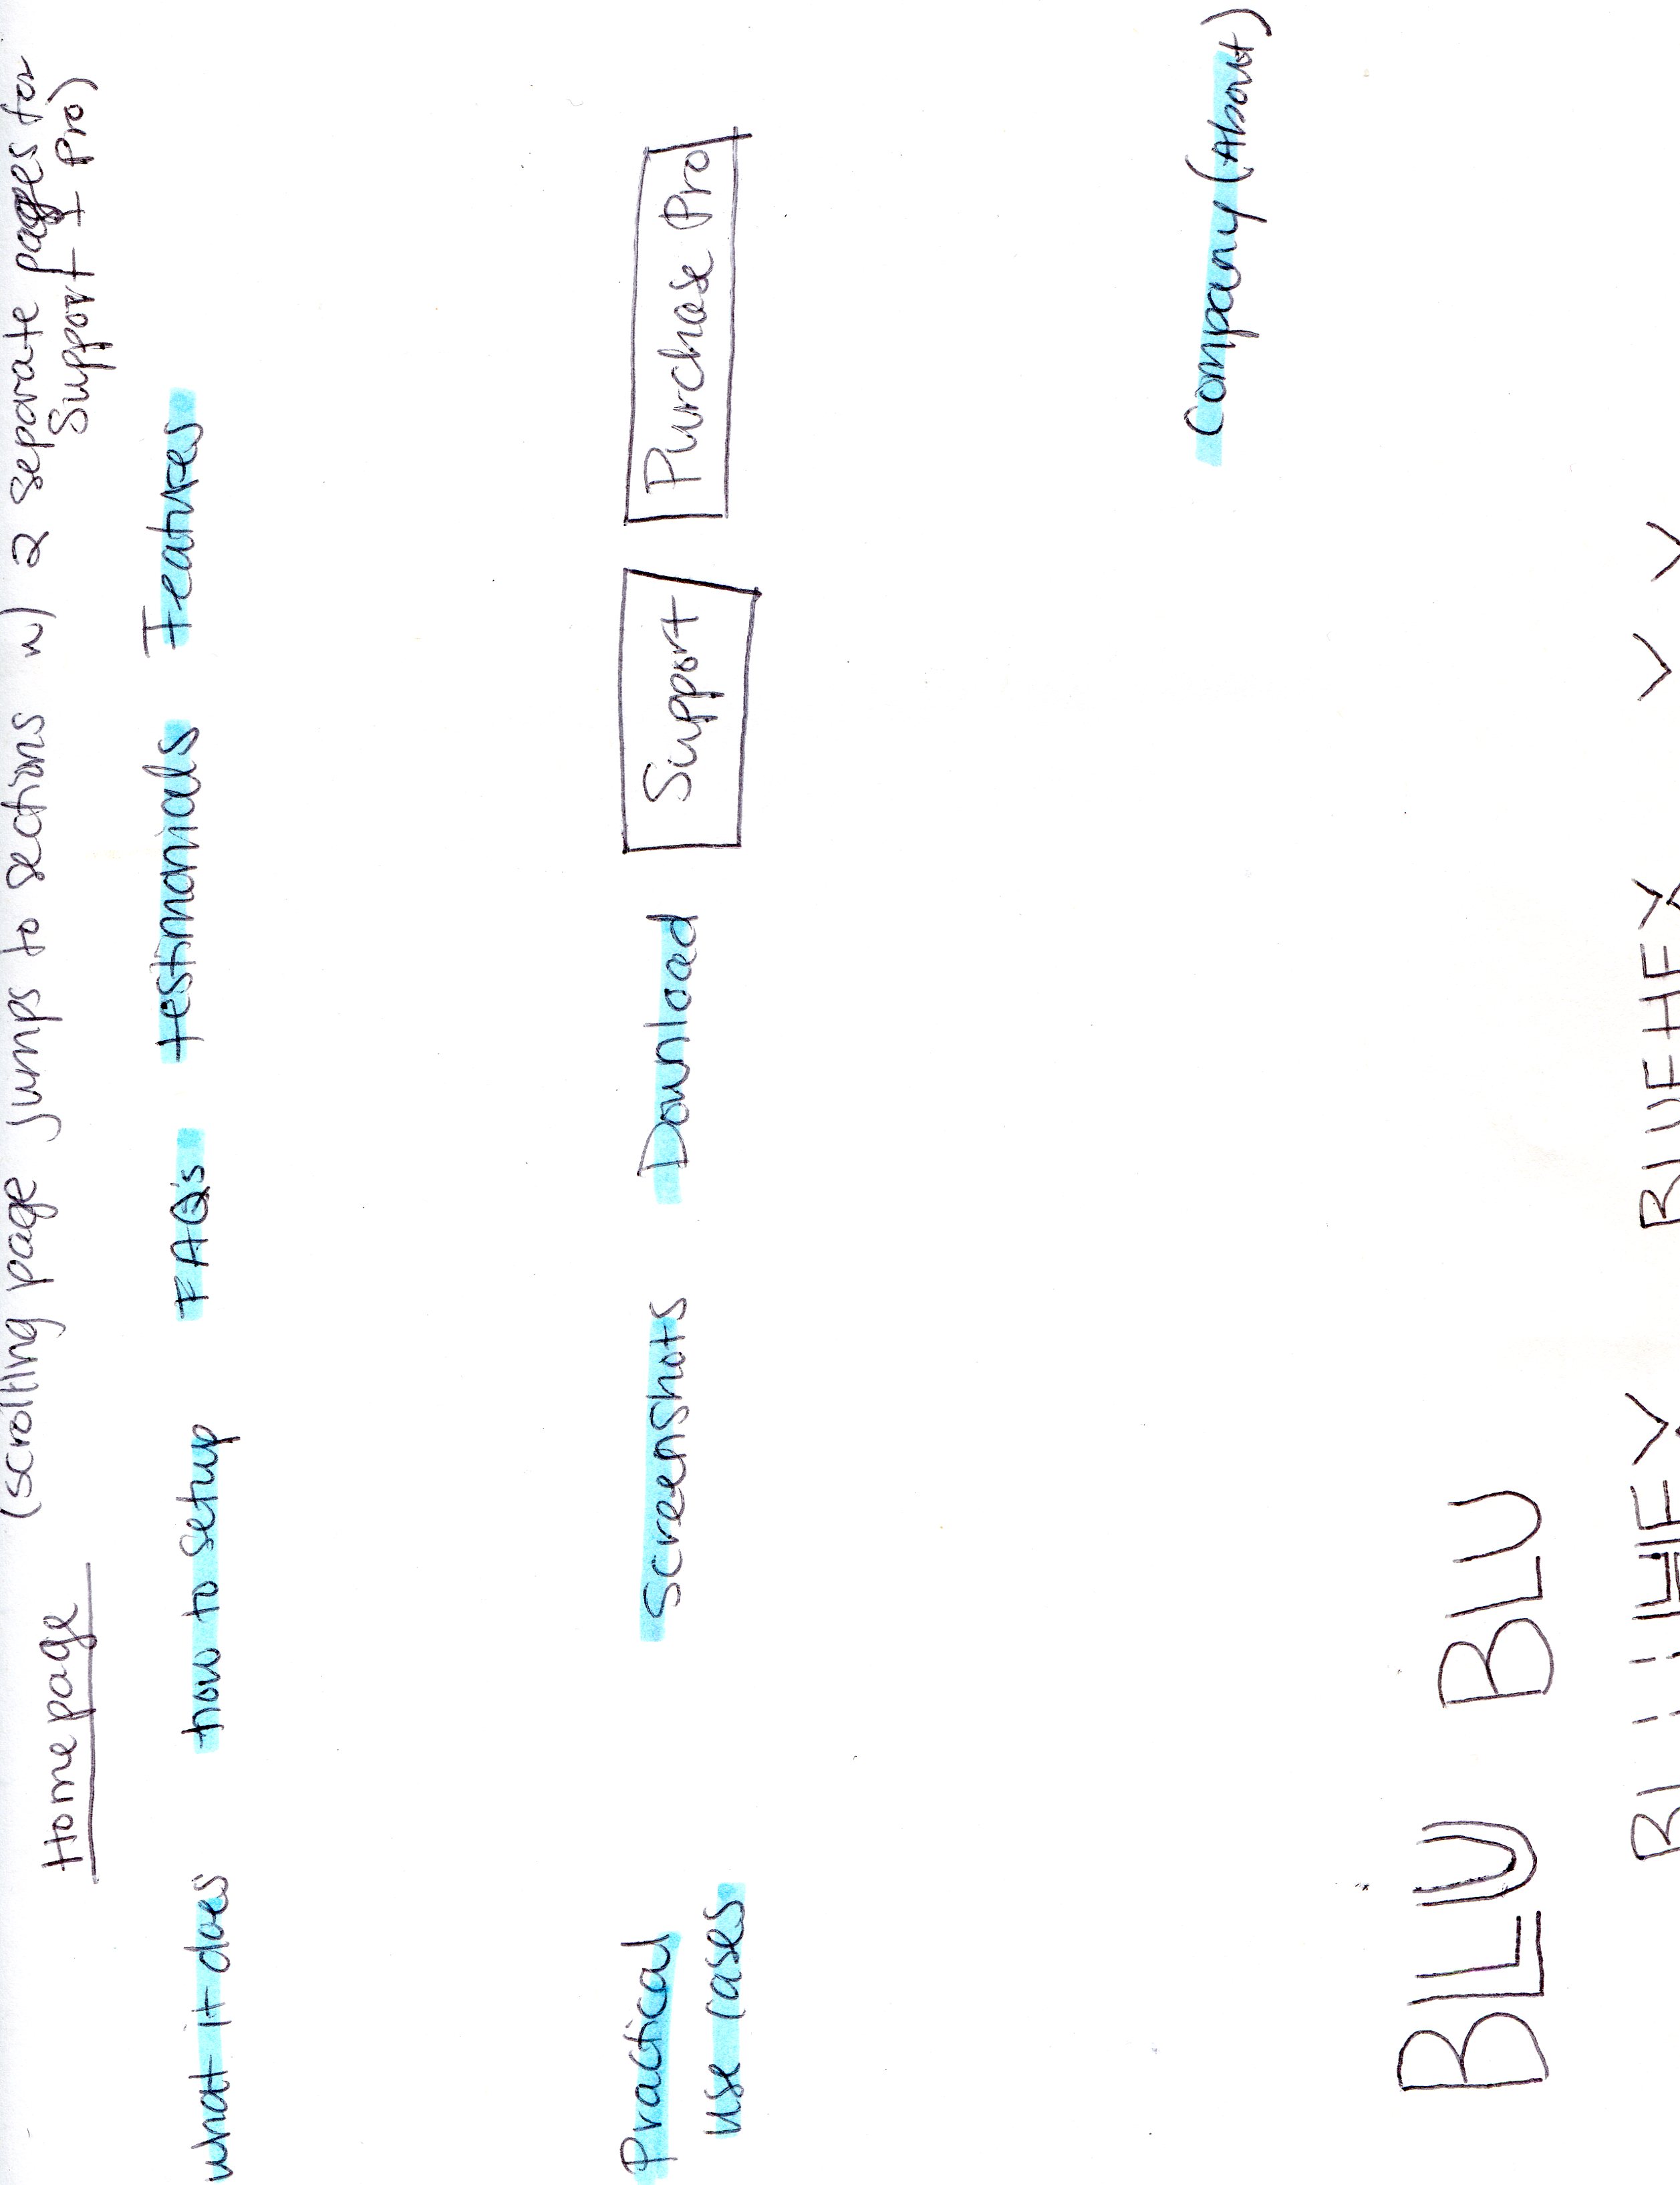 Homepage (scrolling page jumps to sections w) 2 separate pages for
Support + Pro)
what it does how to setup FAQ's testimonials Features
Practical Screenshots Download Support Purchase Pro
use cases
Company (About)
BLU BLU